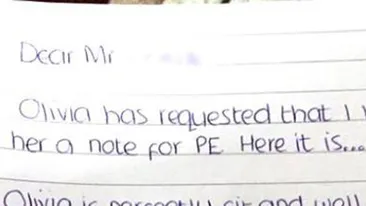 Dear Mr
Olivia has requested that I
her a note for PE Here it is...
Olivia is and well